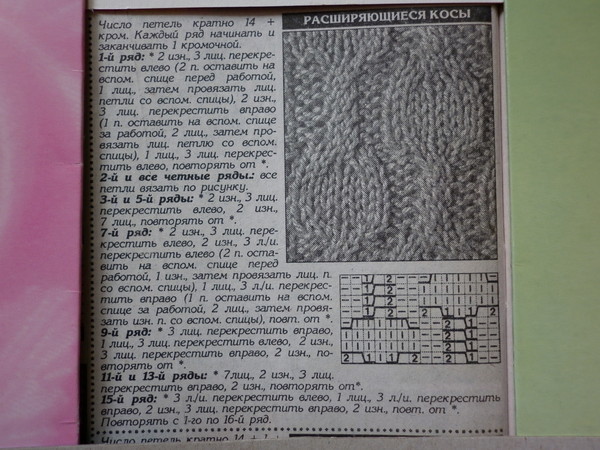 РАСШИРЯЮЩИЕСЯ КОСЫ
Число петель кратно 14 +
кром. Каждый ряд начинать и
заканчивать 1 кромочной.
1-й ряд: * 2 изн., 3 лиц. перекре-
стить влево (2 п. оставить на
вспом. спице перед работой,
1 лиц., затем провязать лиц.
петли со вспом. спицы), 2 изн.,
3 лиц. перекрестить вправо
(1 п. оставить на вспом. спице
за работой, 2 лиц., затем про-
вязать лиц. петлю со вспом.
спицы), 1 лиц., 3 лиц. перекрес-
тить влево, повторять от *.
2-й и все четные ряды.: все
петли вязать по рисунку.
3-й и 5-й ряды: * 2 изн., 3 лиц.
перекрестить влево, 2 изн.,
7 лиц., повторять от *.
7-й ряд: * 2 изн., 3 лиц. пере-
крестить влево, 2 изн., 3 л./и.
перекрестить влево (2 п. оста-
вить на вспом. спице перед
работой, 1 изн., затем провязать лиц. п.
со вспом. спицы), 1 лиц., 3 л./и. перекрес-
тить вправо (1 п. оставить на вспом.
спице за работой, 2 лиц., затем провя-
зать изн. п. со вспом. спицы), повт. от *.
9-й ряд: * 3 лиц. перекрестить вправо,
1 лиц., 3 лиц. перекрестить влево, 2 изн.,
3 лиц. перекрестить вправо, 2 изн., по-
вторять от *.
11-й и 13-й ряды: * 7лиц., 2 изн., 3 лиц.
перекрестить вправо, 2 изн., повторять от*.
15-й ряд: * 3 л./и. перекрестить влево, 1 лиц., 3 л./и. перекрестить
вправо, 2 изн., 3 лиц. перекрестить вправо, 2 изн., повт. от *.
Повторять с 1-го по 16-й ряд.
Число петель кратно 14 + 1 +